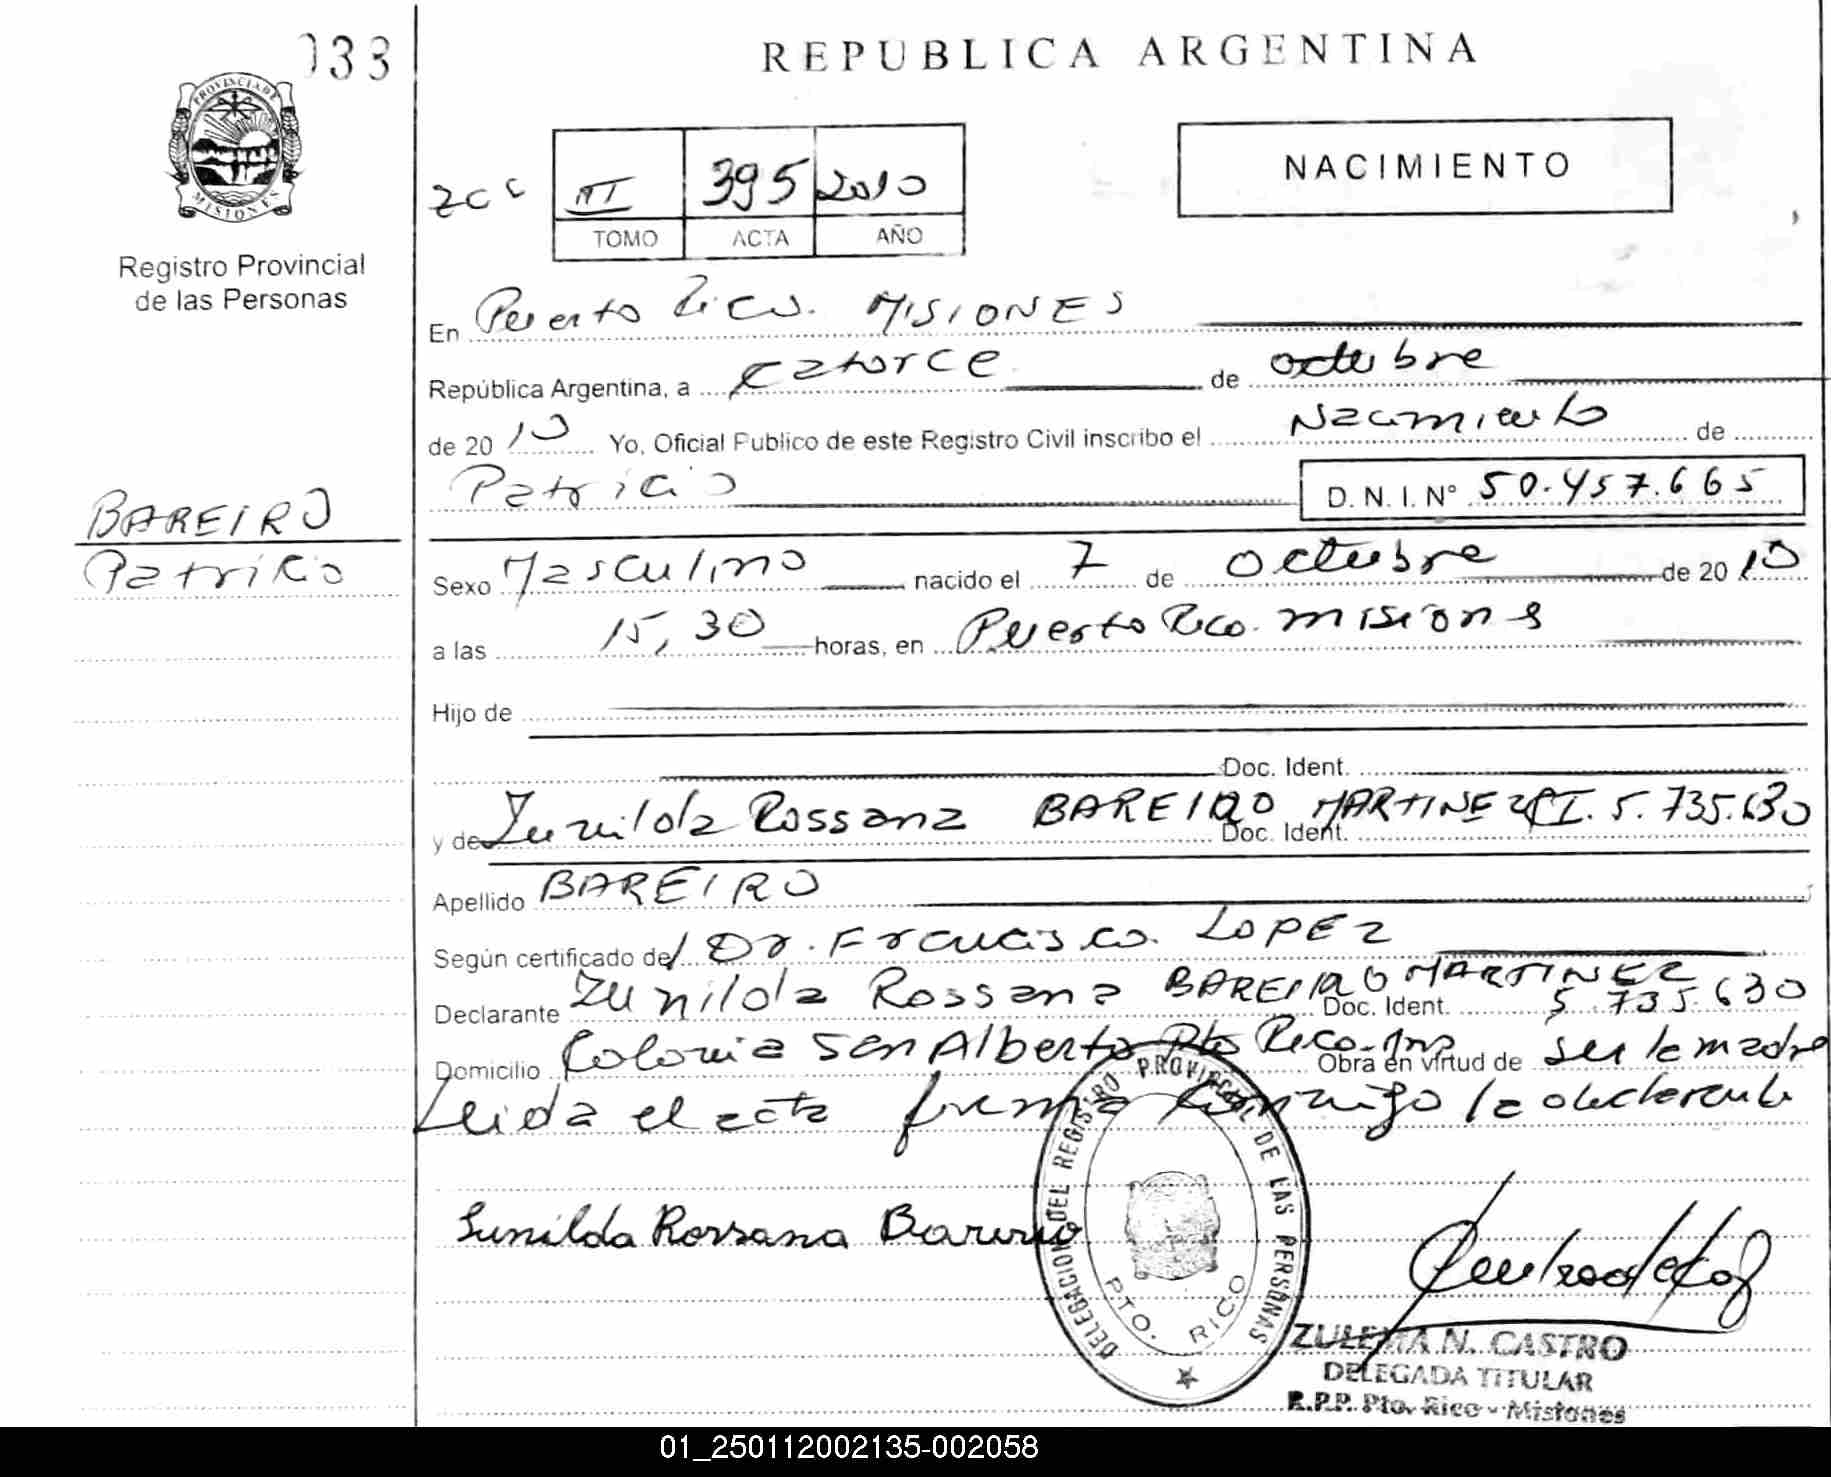 033
REPUBLICA ARGENTINA
PROVINCIA DE MISIONES
Registro Provincial
de las Personas
III 395 2010
TOMO ACTA AÑO
NACIMIENTO
En Puerto Rico. MISIONES
República Argentina, a catorce de octubre
de 2010 Yo, Oficial Publico de este Registro Civil inscribo el Nacimiento de
Patricio D. N. I. N° 50.457.665
BAREIRO
Patricio
Sexo Masculino nacido el 7 de octubre de 2010
a las 15,30 horas, en Puerto Rico. misiones
Hijo de
Doc. Ident.
y de Zunilda Rossana BAREIRO MARTINEZ Doc. Ident. CI. 5.735.630
Apellido BAREIRO
Según certificado de/ Dr. Francisco. LOPEZ
Declarante Zunilda Rossana BAREIRO MARTINEZ Doc. Ident. 5.735.630
Domicilio Colonia San Alberto Pto Rico-Mns Obra en virtud de ser la madre
Leida el acta firma conmigo la declarante
Sunilda Rossana Bareiro
DELEGACION DEL REGISTRO PROVINCIAL DE LAS PERSONAS
PTO. RICO
ZULEMA N. CASTRO
DELEGADA TITULAR
R.P.P. Pto. Rico - Misiones
01_250112002135-002058